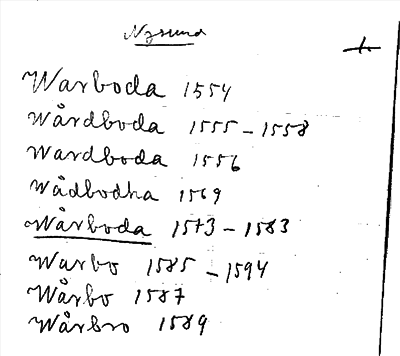 Nysund
1.
Warboda 1554
Wårdboda 1555 – 1558
Wardboda 1556
Wådbodha 1569
Wårboda 1573 – 1583
Warbo 1585 – 1594
Wårbo 1587
Wårbro 1589